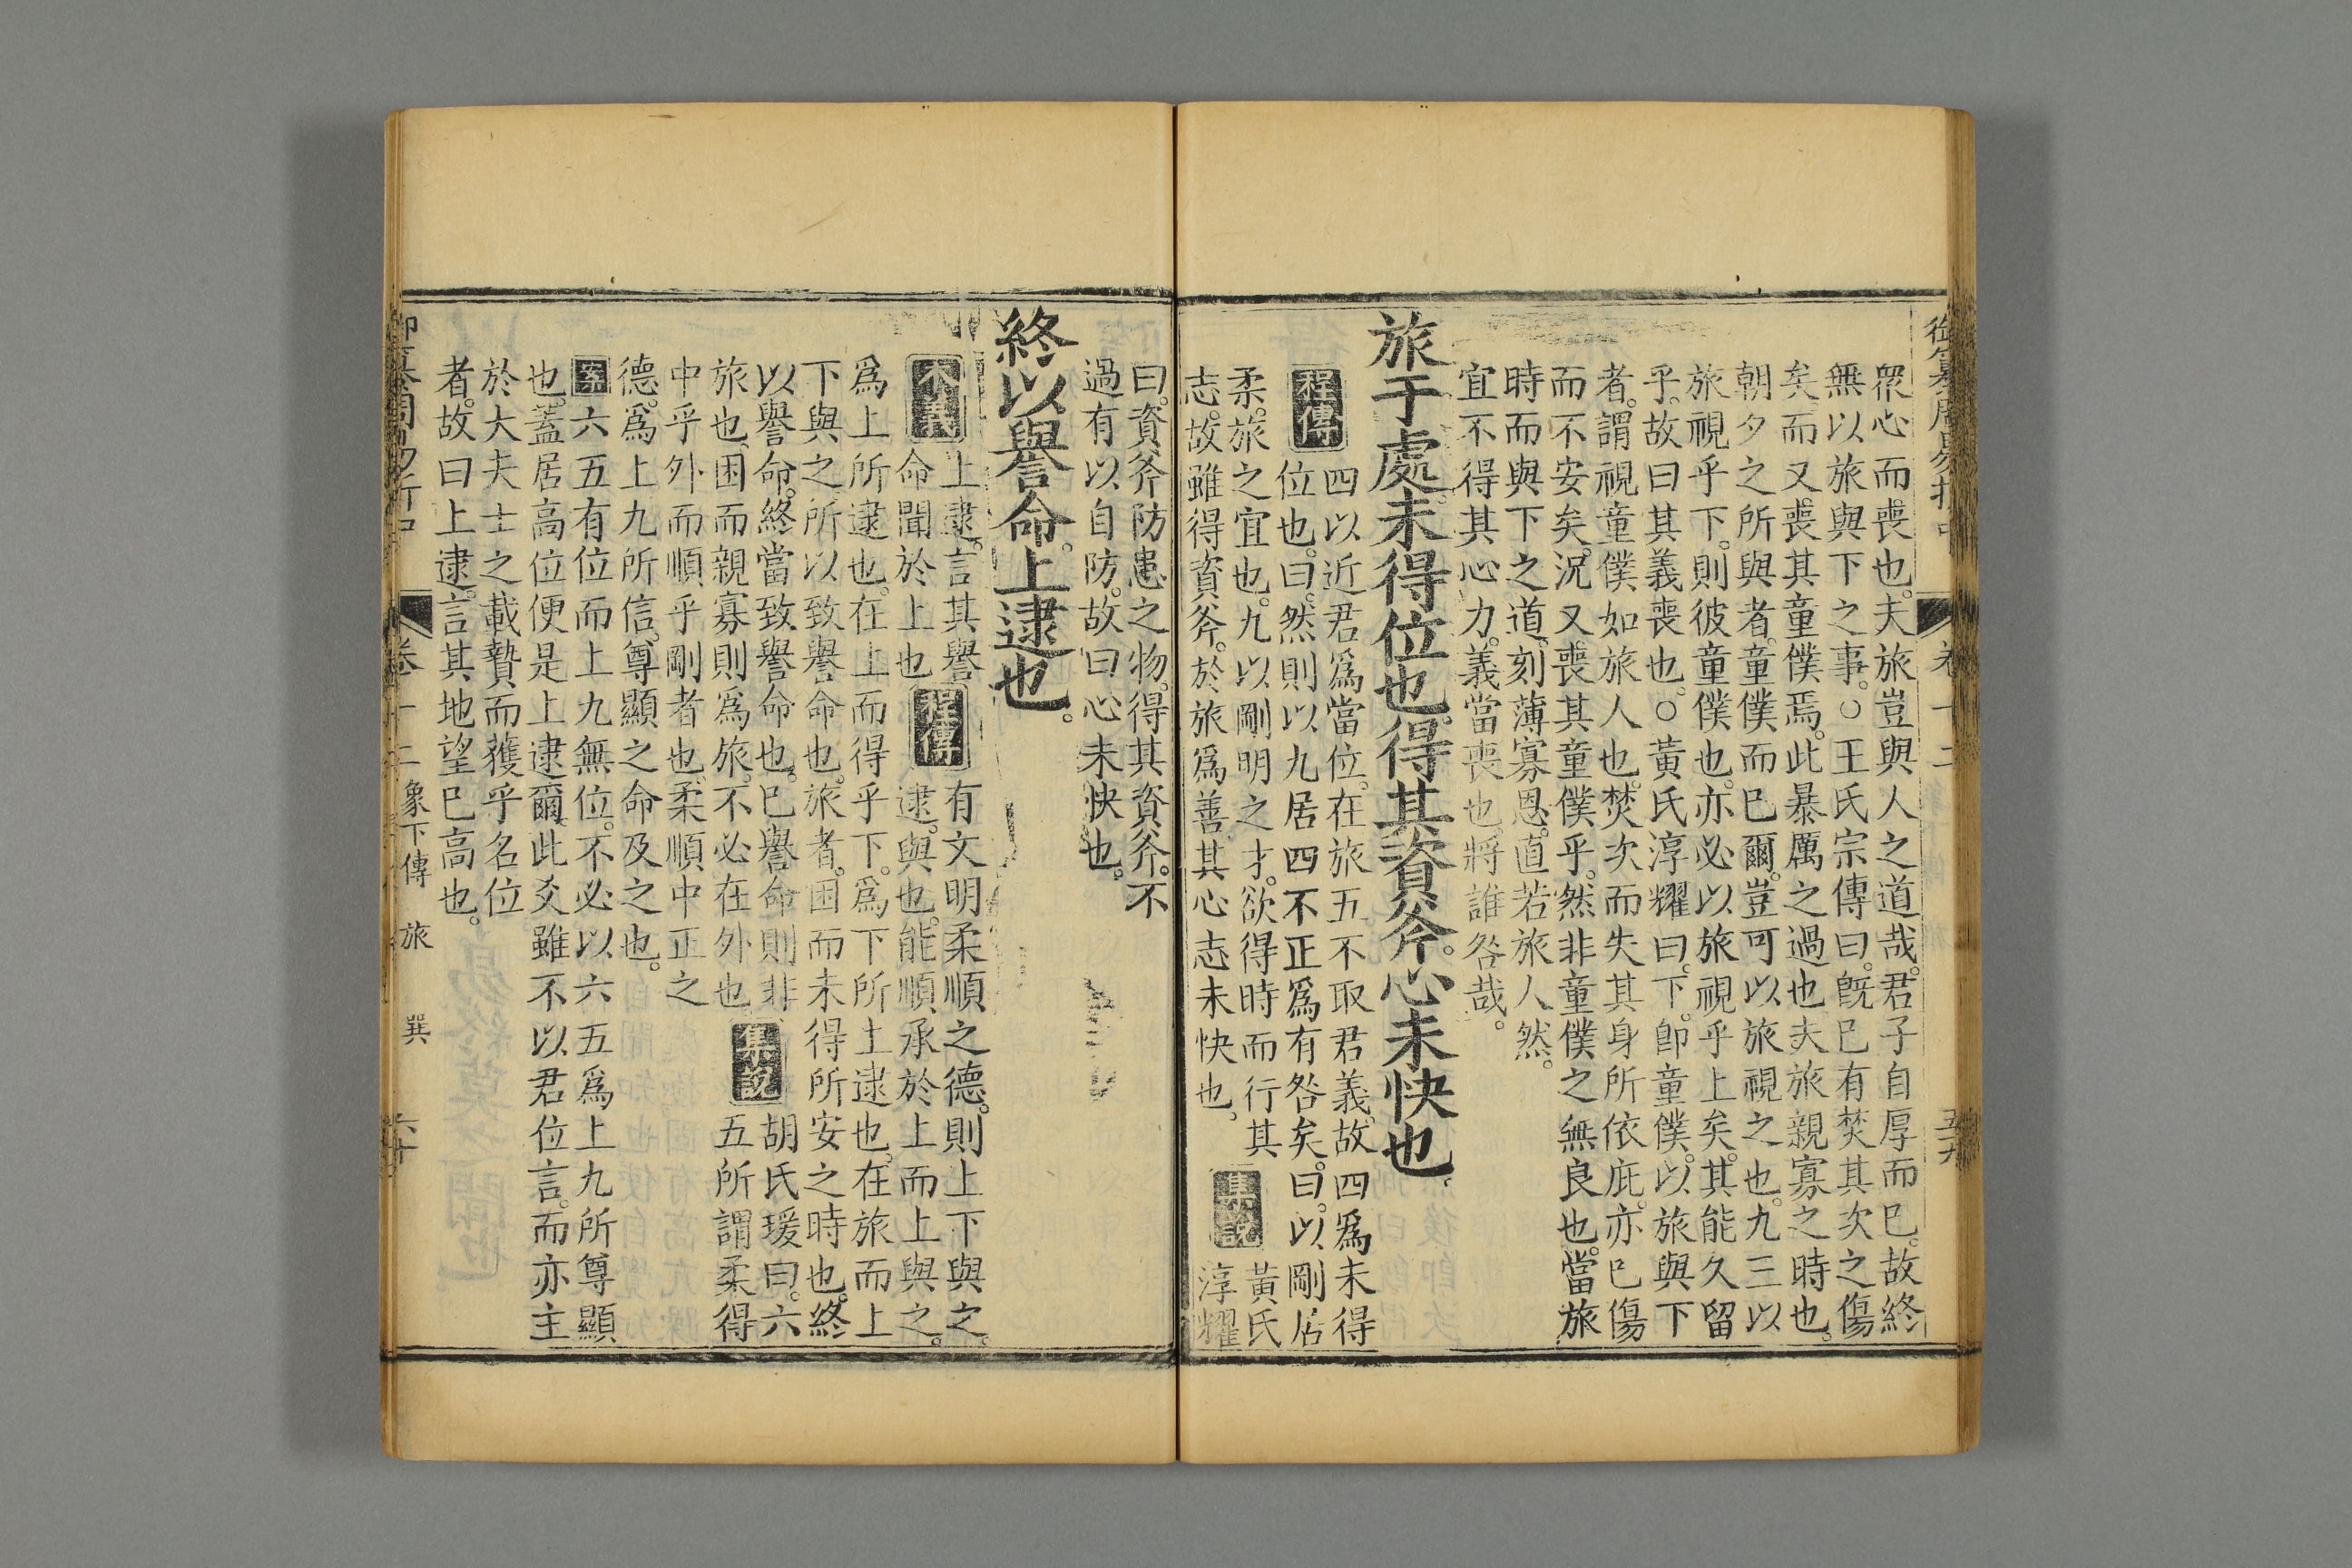 御纂周易折中
卷十二
五十九
衆心而喪也。夫旅豈與人之道哉。君子自厚而已。故終
無以旅與下之事。○王氏宗傳曰。旣已有焚其次之傷
矣。而又喪其童僕焉。此暴厲之過也。夫旅親寡之時也。
朝夕之所與者。童僕而已爾。豈可以旅視之也。九三以
旅視乎下。則彼童僕也。亦必以旅視乎上矣。其能久留
乎。故曰其義喪也。○黃氏淳耀曰。下。卽童僕。以旅與下
者。謂視童僕如旅人也。焚次而失其身所依庇。亦已傷
而不安矣。況又喪其童僕乎。然非童僕之無良也。當旅
時而與下之道。刻薄寡恩。直若旅人然。
宜不得其心力。義當喪也。將誰咎哉。
旅于處。未得位也。得其資斧。心未快也。
程傳
四以近君爲當位。在旅五不取君義。故四爲未得
位也。曰。然則以九居四不正爲有咎矣。曰。以剛居
柔。旅之宜也。九以剛明之才。欲得時而行其
志。故雖得資斧。於旅爲善。其心志未快也。
集說
黃氏
淳耀
曰。資斧防患之物。得其資斧。不
過有以自防。故曰心未快也。
終以譽命。上逮也。
本義
上逮。言其譽
命聞於上也
程傳
有文明柔順之德。則上下與之。
逮。與也。能順承於上而上與之。
爲上所逮也。在上而得乎下。爲下所上逮也。在旅而上
下與之。所以致譽命也。旅者。困而未得所安之時也。終
以譽命。終當致譽命也。已譽命則非
旅也。困而親寡則爲旅。不必在外也
集說
胡氏瑗曰。六
五所謂柔得
中乎外而順乎剛者也。柔順中正之
德。爲上九所信。尊顯之命及之也。
案
六五有位而上九無位。不必以六五爲上九所尊顯
也。蓋居高位便是上逮爾。此爻雖不以君位言。而亦主
於大夫士之載贄而獲乎名位
者。故曰上逮。言其地望已高也。
御纂周易折中
卷十二
象下傳
旅
巽
六十